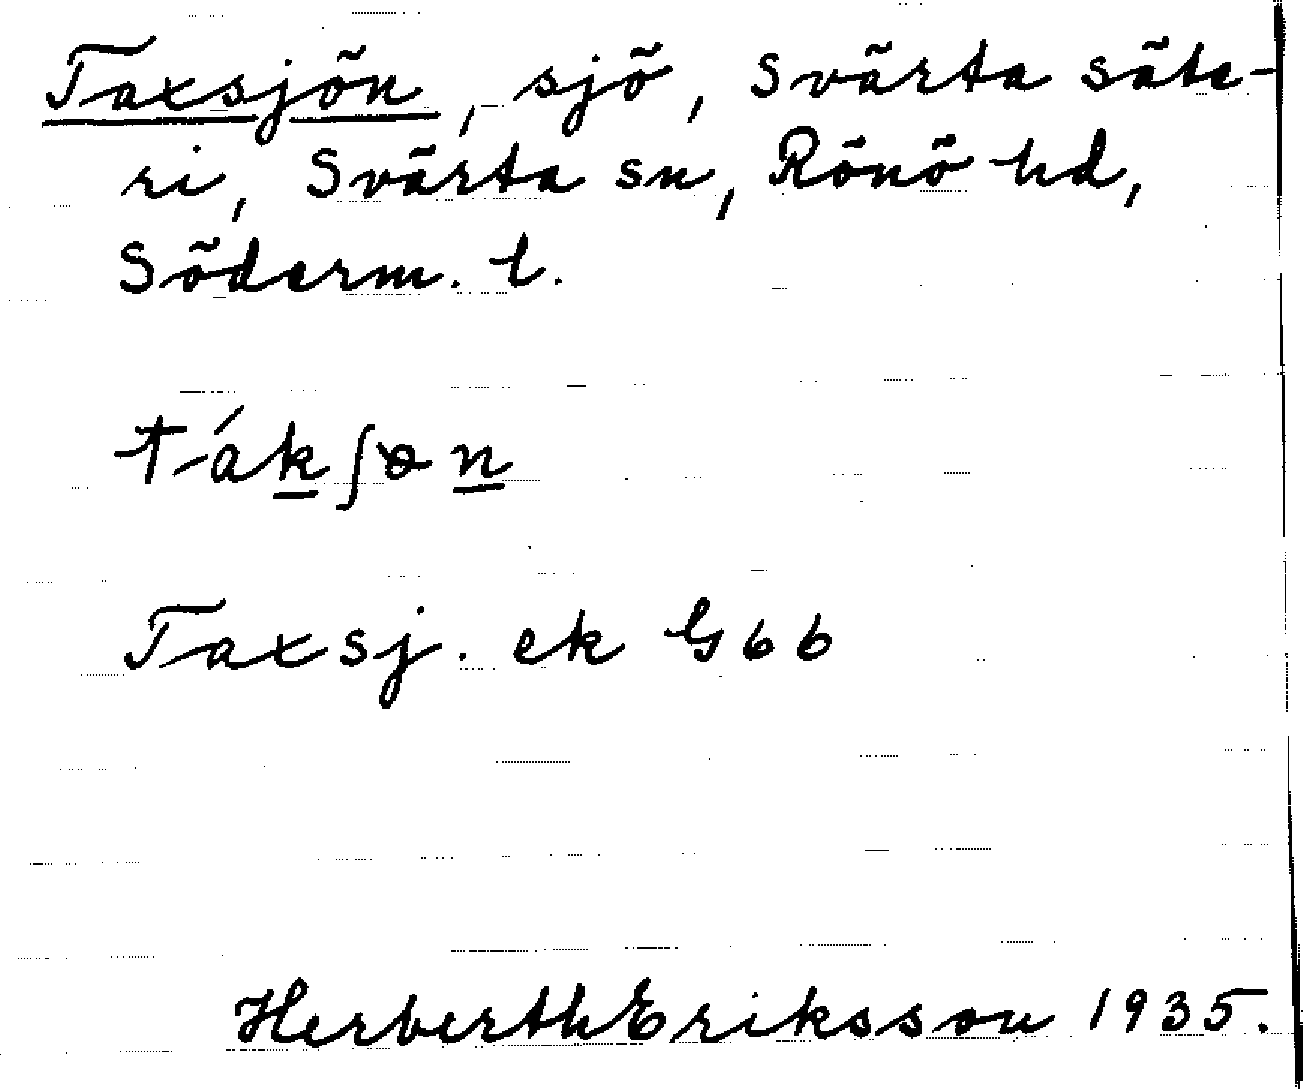 Taxsjön, sjö, Svärta säte-
ri, Svärta sn, Rönö hd,
Söderm. l.
t-ákʃɷn
Taxsj. ek G 66
Herberth Eriksson 1935.